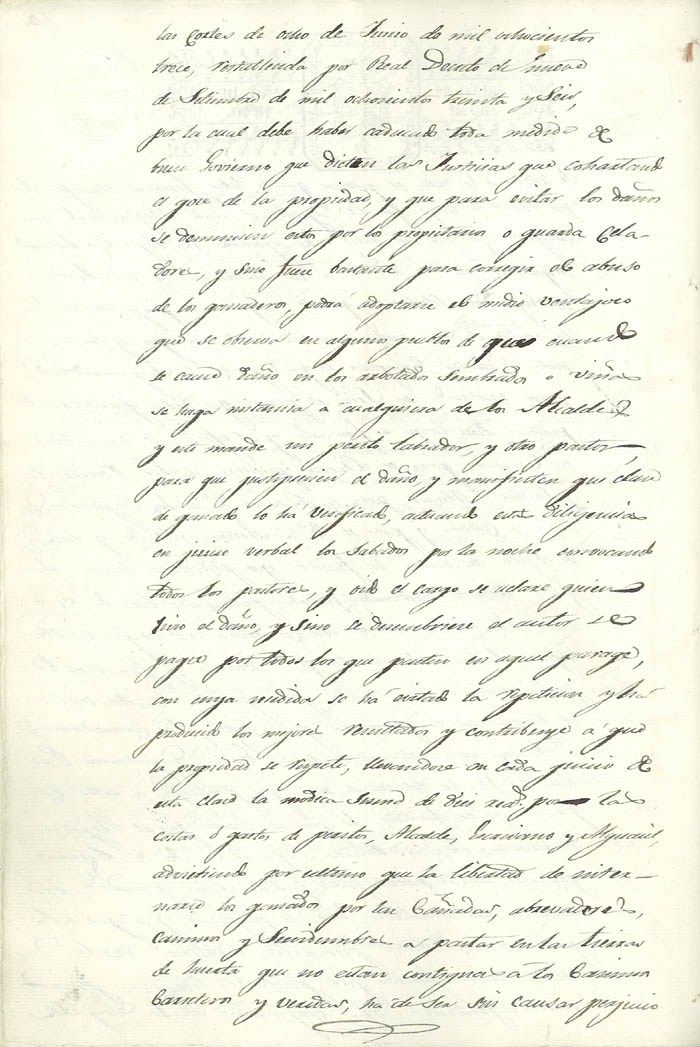 las Cortes de ocho de Junio de mil ochocientos
trece, restablecida por Real Decreto de
de Setiembre de mil ochocientos treinta y Seis,
por la cual debe haber caducado toda medida de
buen Govierno que dicten las Justicias que cohartando
el goze de la propiedad, y que para evitar los daños
se denuncien estos por los propietarios o guarda Cela-
dores, y sino fuere bastante para corregir el abuso
de los ganaderos, podrá adoptarse el medio ventajoso
que se observa en algunos pueblos de que cuando
se cause daño en los arbolados sembrados o viñas
se haga instancia a cualquiera de los Alcaldes
y este mande un perito labrador, y otro pastor,
para que justiprecien el daño, y manifiesten que clase
de ganado lo há verificado, actuando esta diligencia
en juicio verbal los Sabados por la noche convocando
todos los pastores, y oido el cargo se aclare quien
hizo el daño, y sino se descubriere el autor se
pague por todos los que pasten en aquel parage,
con cuya medida se há evitado la repeticion y há
producido los mejores resultados y contribuye á que
la propiedad se respete, llevandose en cada juicio de
esta clase la modica suma de reales por las
costas ó gastos de peritos, Alcalde, Escrivano y Alguacil,
advirtiendo por ultimo que la libertad de inter-
narse los ganados por las Cañadas, abrevaderos,
Caminos y Servidumbres a pastar en las tierras
de huerta que no estan contiguas á los Caminos
Carreteros y veredas, ha de sea sin causar perjuicio